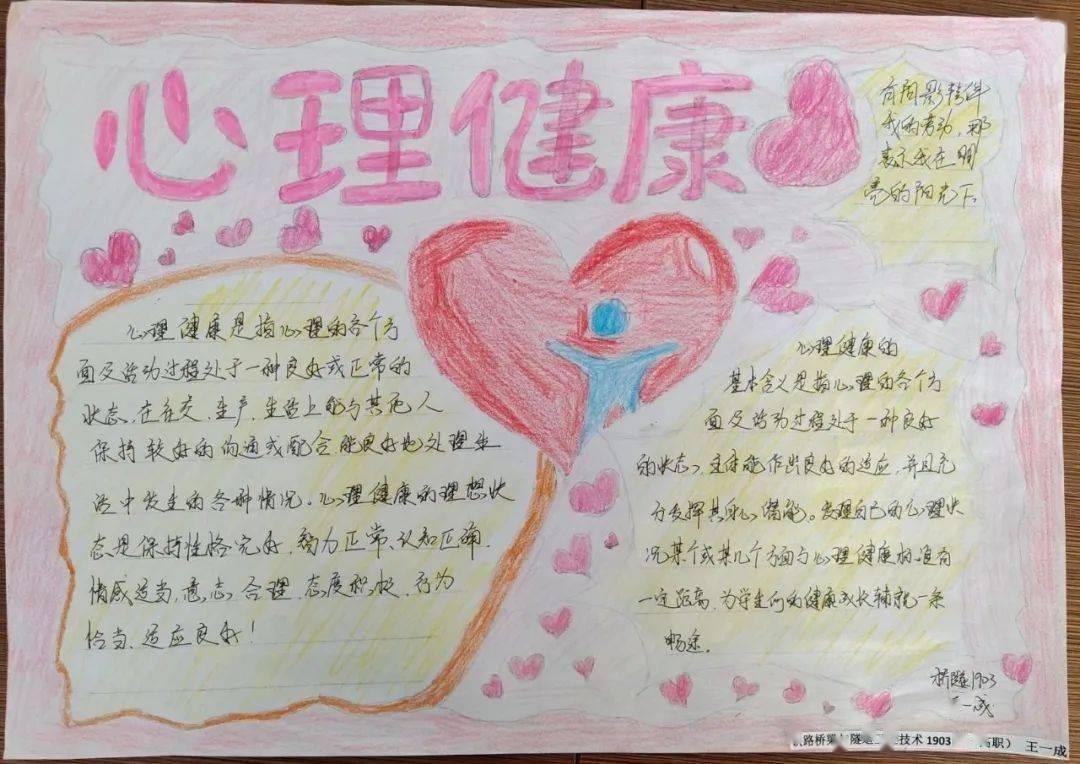 心理健康
有阴影转伴
我的劳动，那
表示我在明
亮的阳光下
心理健康是指心理的各个方
面及活动过程处于一种良好或正常的
状态，在社交，生产，生活上能与其他人
保持较好的沟通或配合能良好地处理生
活中发生的各种情况。心理健康的理想状
态是保持性格完好，智力正常，认知正确，
情感适当，意志合理，态度积极，行为
恰当，适应良好！
心理健康的
基本含义是指心理的各个方
面及活动过程处于一种良好
的状态，主体能作出良好的适应，并且充
分发挥其身心潜能。发现自己的心理状
况某个或某几个方面与心理健康标准有
一定距离，为学生们的健康成长铺就一条
畅途。
桥隧1903
一成
路桥梁 隧道 技术 1903 高职） 王一成